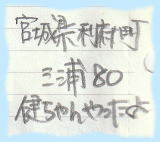 宮城県利府町
三浦80
健ちゃんやったよ